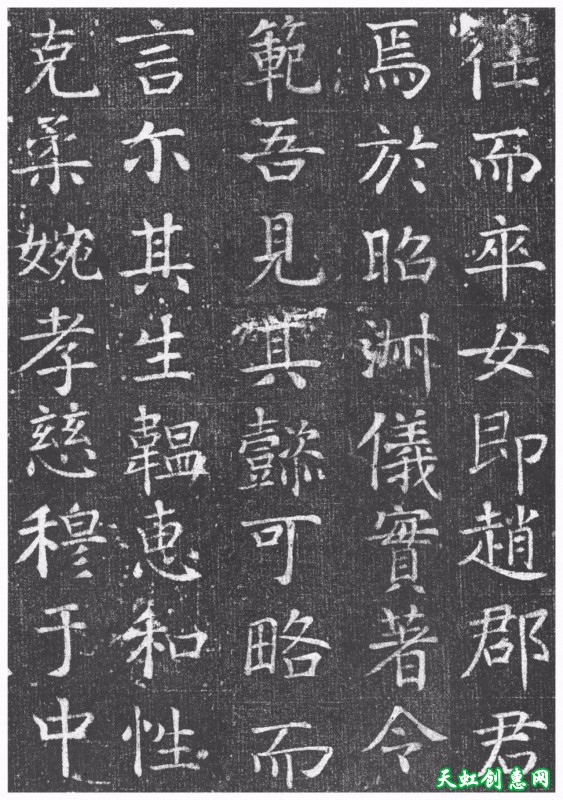 往而卒女即趙郡君
焉於昭淋儀實著令
範吾見其懿可略而
言尒其生韞恵和性
克柔婉孝慈穆于中
天虹创惠网